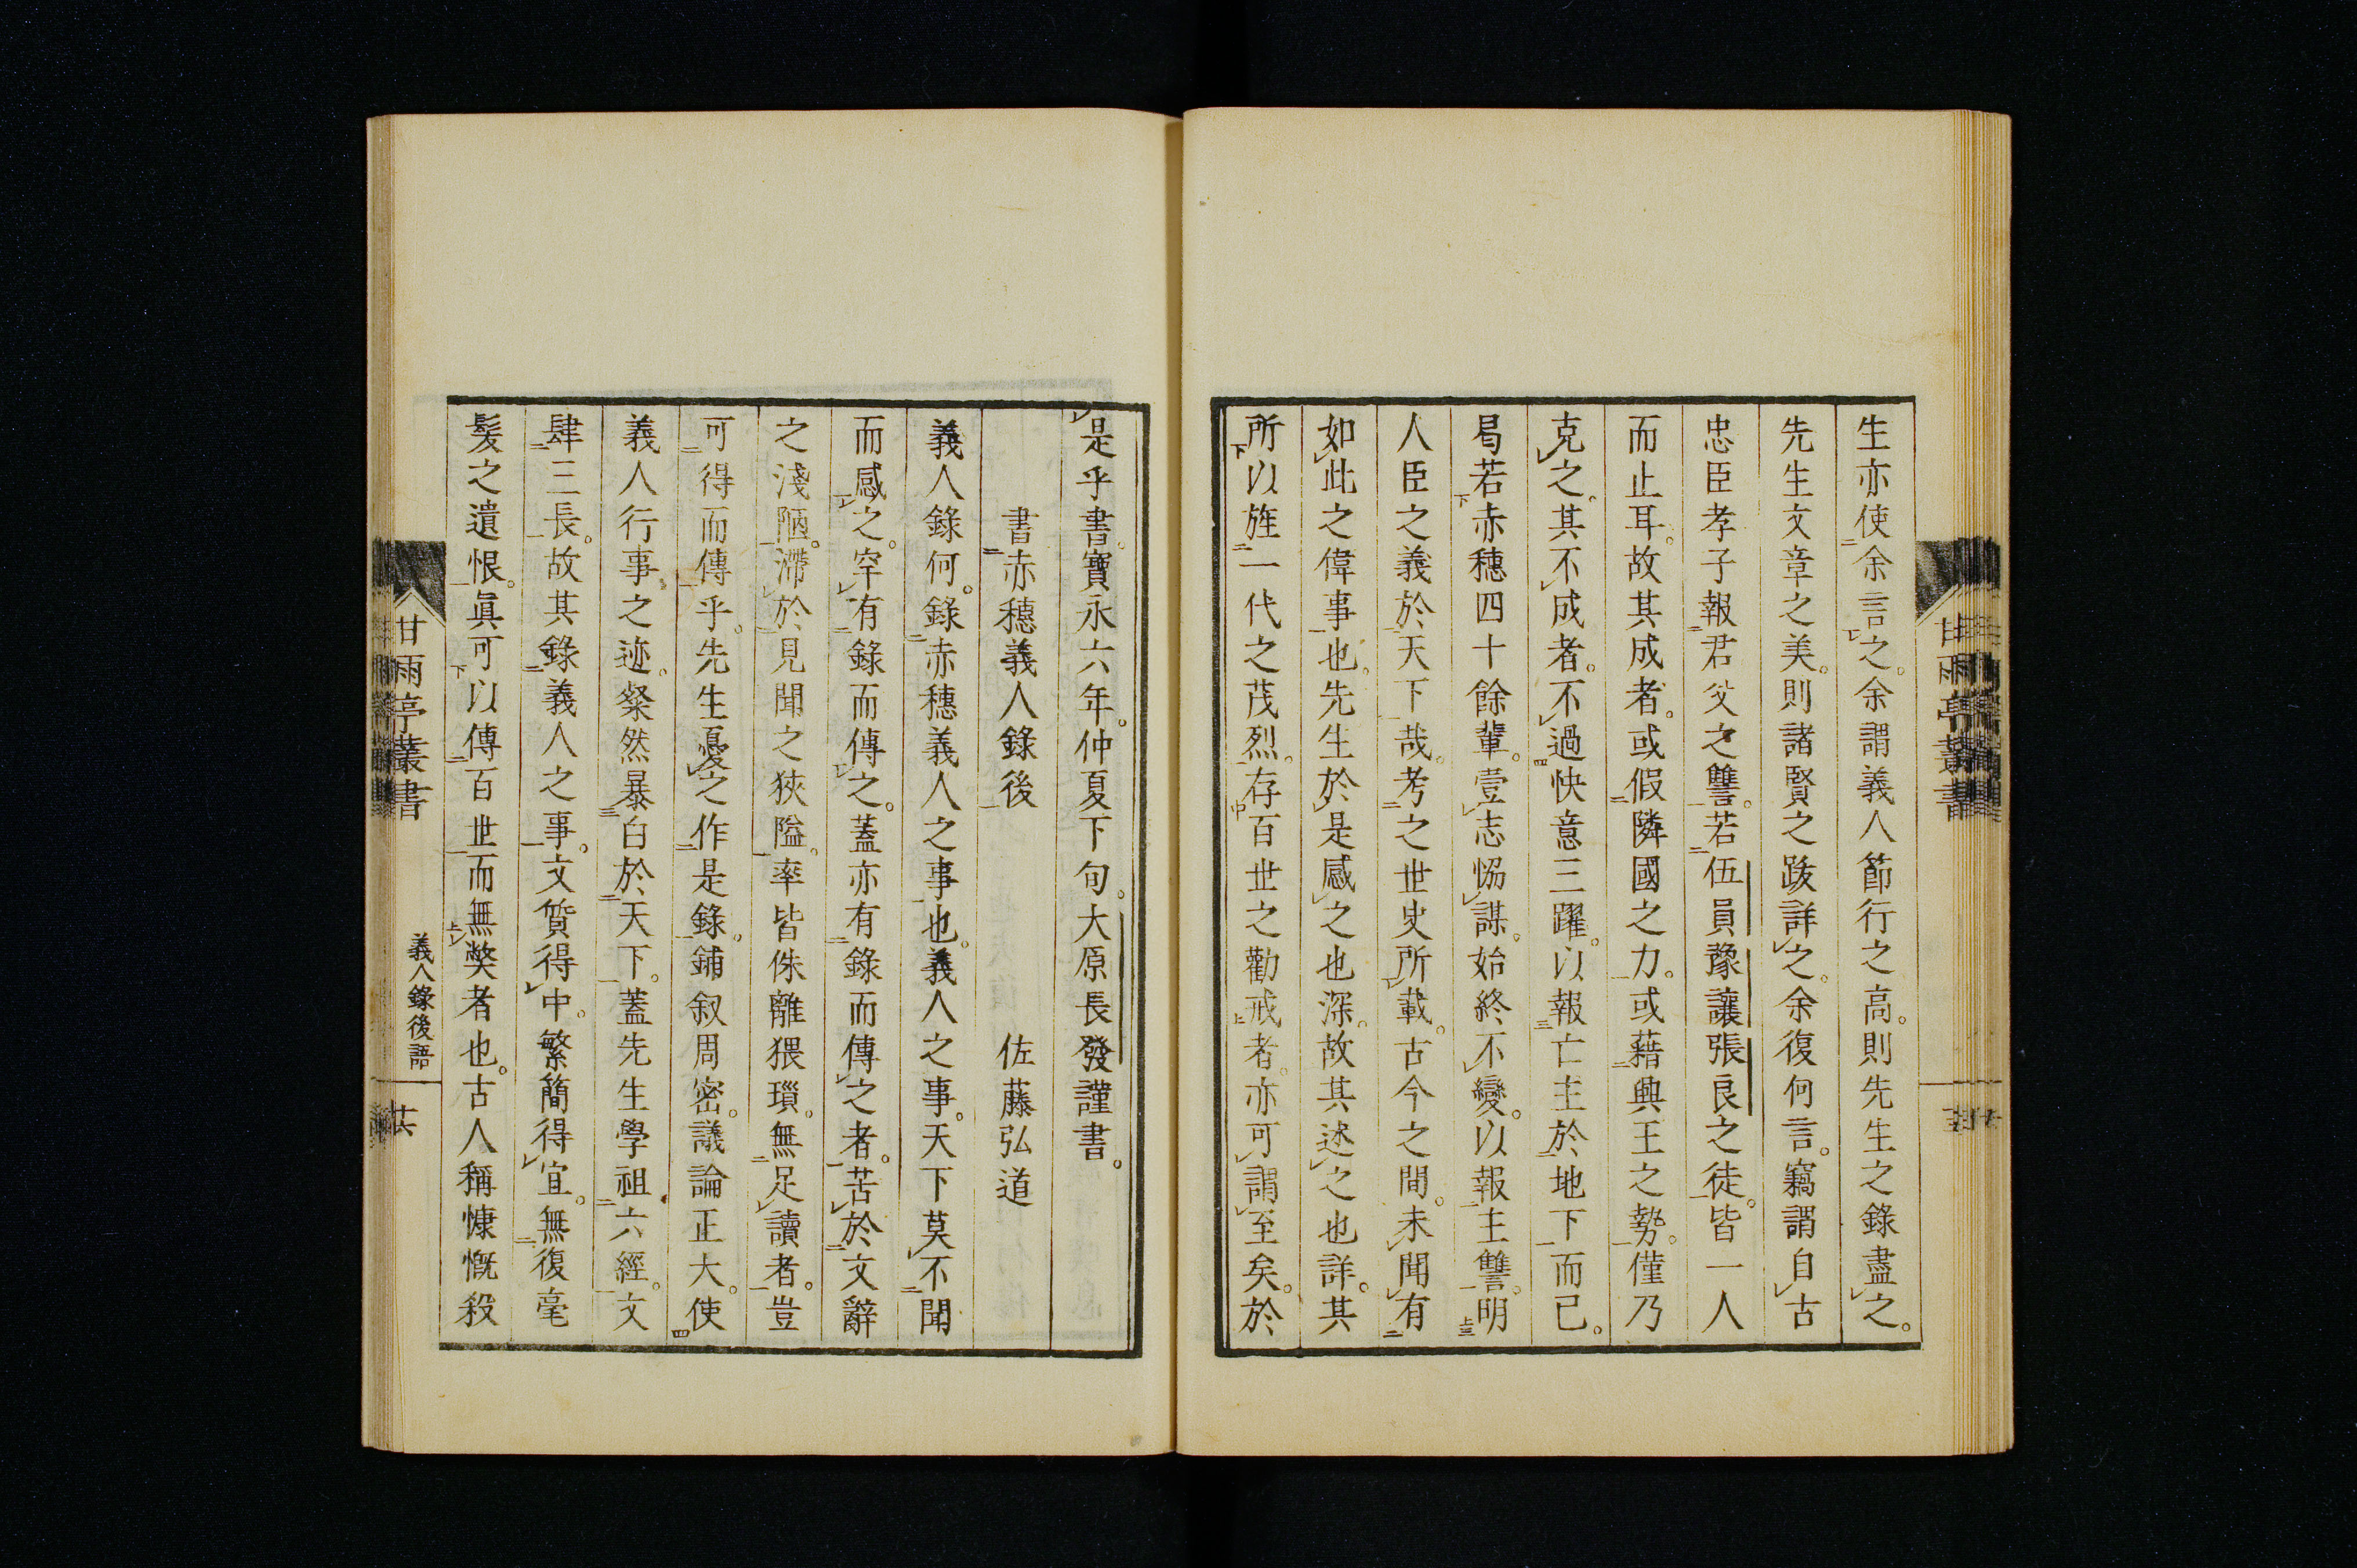 生亦使余言之。余謂義人節行之高。則先生之錄盡之。
先生文章之美。則諸賢之跋詳之。余復何言。竊謂自古
忠臣孝子報君父之讐。若伍員豫讓張良之徒。皆一人
而止耳。故其成者。或假隣國之力。或藉興王之勢。僅乃
克之。其不成者。不過快意三躍。以報亡主於地下而已。
曷若赤穗四十餘輩。壹志恊謀。始終不變。以報主讐。明
人臣之義於天下哉。考之世史所載。古今之間。未聞有
如此之偉事也。先生於是感之也深。故其述之也詳。其
所以旌一代之茂烈。存百世之勸戒者。亦可謂至矣。於
是乎書。寶永六年。仲夏下旬。大原長發謹書。
書赤穗義人錄後 佐藤弘道
義人錄何。錄赤穗義人之事也。義人之事。天下莫不聞
而感之。罕有錄而傳之。蓋亦有錄而傳之者。苦於文辭
之淺陋。滯於見聞之狹隘。率皆侏離猥瑣。無足讀者。豈
可得而傳乎。先生憂之作是錄。鋪叙周密。議論正大。使
義人行事之迹。粲然暴白於天下。蓋先生學祖六經。文
肆三長。故其錄義人之事。文質得中。繁簡得宜。無復毫
髮之遺恨。眞可以傳百世而無弊者也。古人稱慷慨殺
甘雨亭叢書
義人錄後語
廿六
甘雨亭叢書